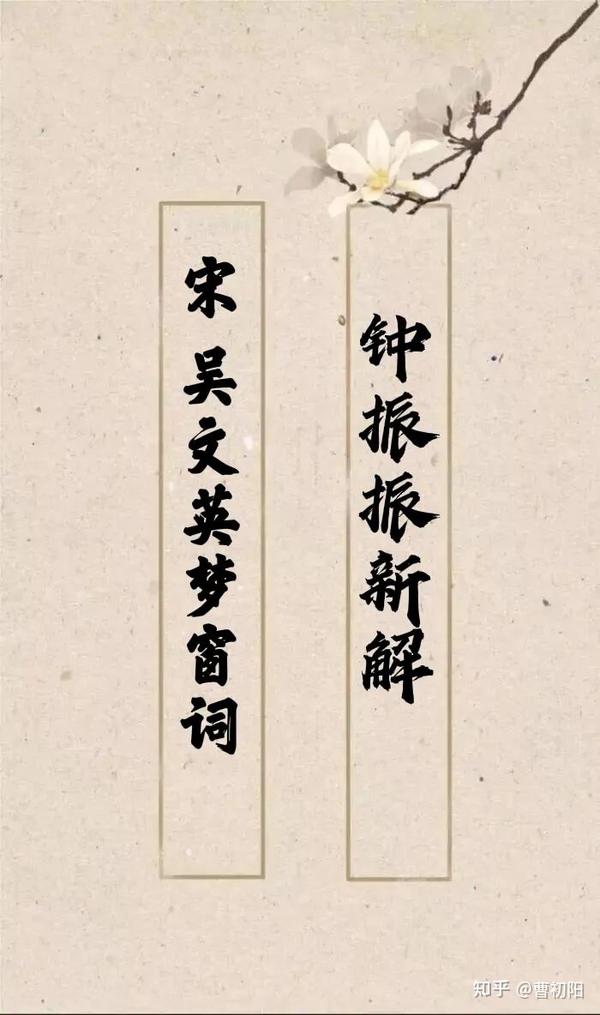 钟振振新解
宋 吴文英梦窗词
知乎 @曹初阳